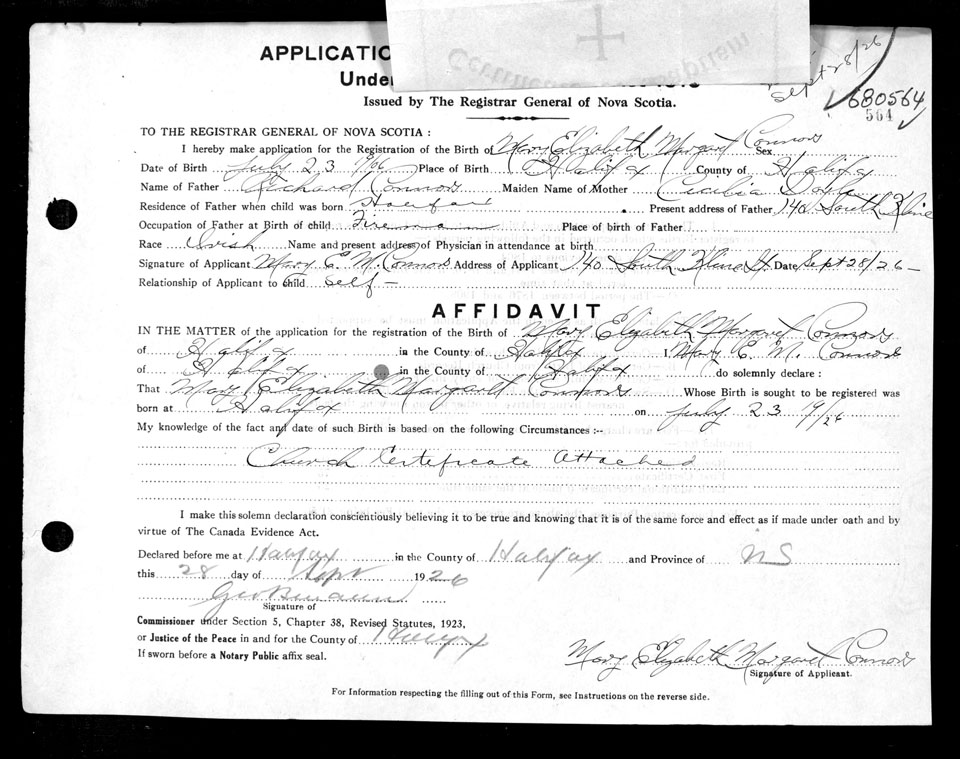 APPLICATIO
Under
Issued by The Registrar General of Nova Scotia.
Sept 28/26
680564
564
TO THE REGISTRAR GENERAL OF NOVA SCOTIA :
I hereby make application for the Registration of the Birth of Mary Elizabeth Margaret Connors Sex
Date of Birth July 23 Place of Birth Halifax County of Halifax
Name of Father Richard Connors Maiden Name of Mother Cecilia
Residence of Father when child was born Halifax Present address of Father 140 South Kline
Occupation of Father at Birth of child Fireman Place of Birth of Father
Race Irish Name and present address of Physician in attendance at birth
Signature of Applicant Mary E. M. Connors Address of Applicant 140 South Kline St. Date Sept 28/26 -
Relationship of Applicant to child self -
AFFIDAVIT
IN THE MATTER of the application for the registration of the Birth of Mary Elizabeth Margaret Connors
of Halifax in the County of Halifax I, Mary E. M. Connors
of Halifax in the County of Halifax do solemnly declare :
That Mary Elizabeth Margaret Connors Whose Birth is sought to be registered was
born at Halifax on July 23
My knowledge of the fact and date of such Birth is based on the following Circumstances :--
Church Certificate Attached
I make this solemn declaration conscientiously believing it to be true and knowing that it is of the same force and effect as if made under oath and by
virtue of The Canada Evidence Act.
Declared before me at Halifax in the County of Halifax and Province of NS
this 28 day of Sept 1926
Signature of
Commissioner under Section 5, Chapter 38, Revised Statutes, 1923,
or Justice of the Peace in and for the County of Halifax
If sworn before a Notary Public affix seal.
Mary Elizabeth Margaret Connors
Signature of Applicant.
For Information respecting the filling out of this Form, see Instructions on the reverse side.